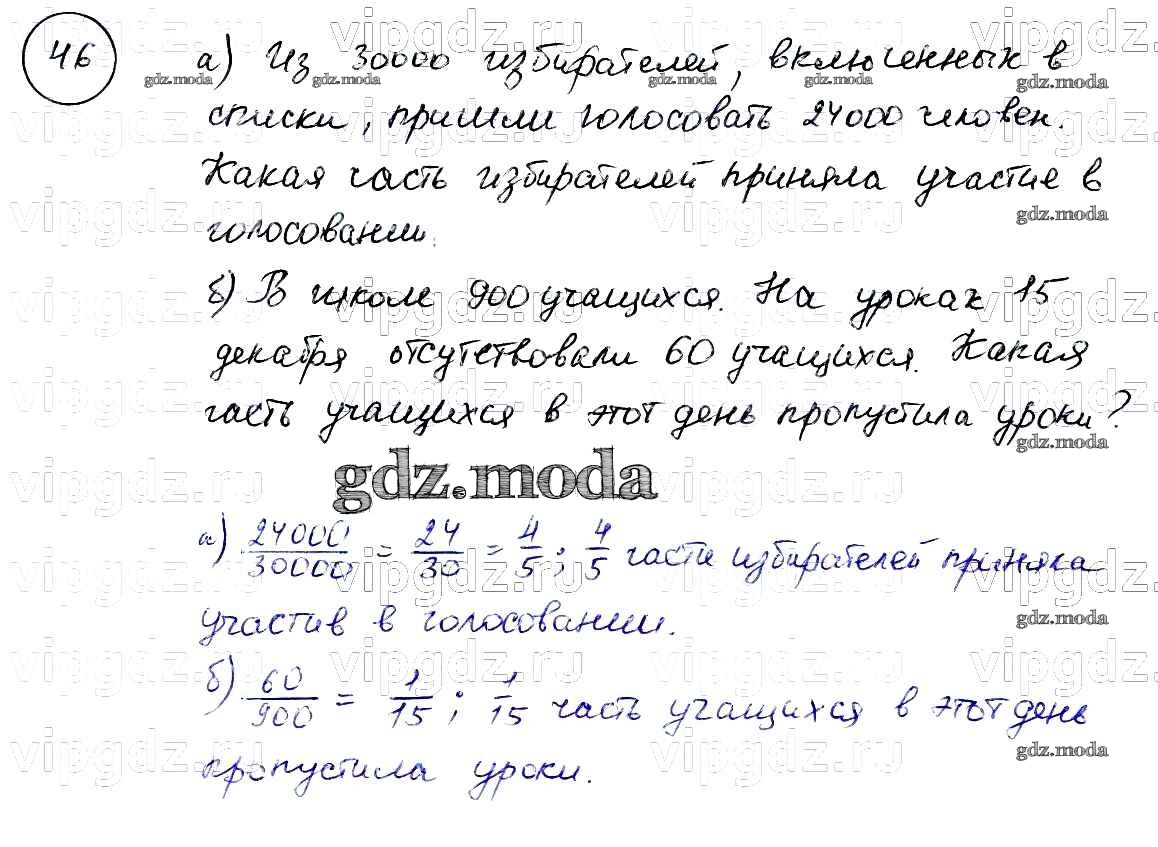 46 а) Из 30000 избирателей, включенных в
списки, пришли голосовать 24000 человек.
Какая часть избирателей приняла участие в
голосовании.
б) В школе 900 учащихся. На уроках 15
декабря отсутствовали 60 учащихся. Какая
часть учащихся в этот день пропустила уроки?
gdz.moda
а) 24000/30000 = 24/30 = 4/5; 4/5 части избирателей приняла
участив в голосовании.
б) 60/900 = 1/15; 1/15 часть учащихся в этот день
пропустила уроки.